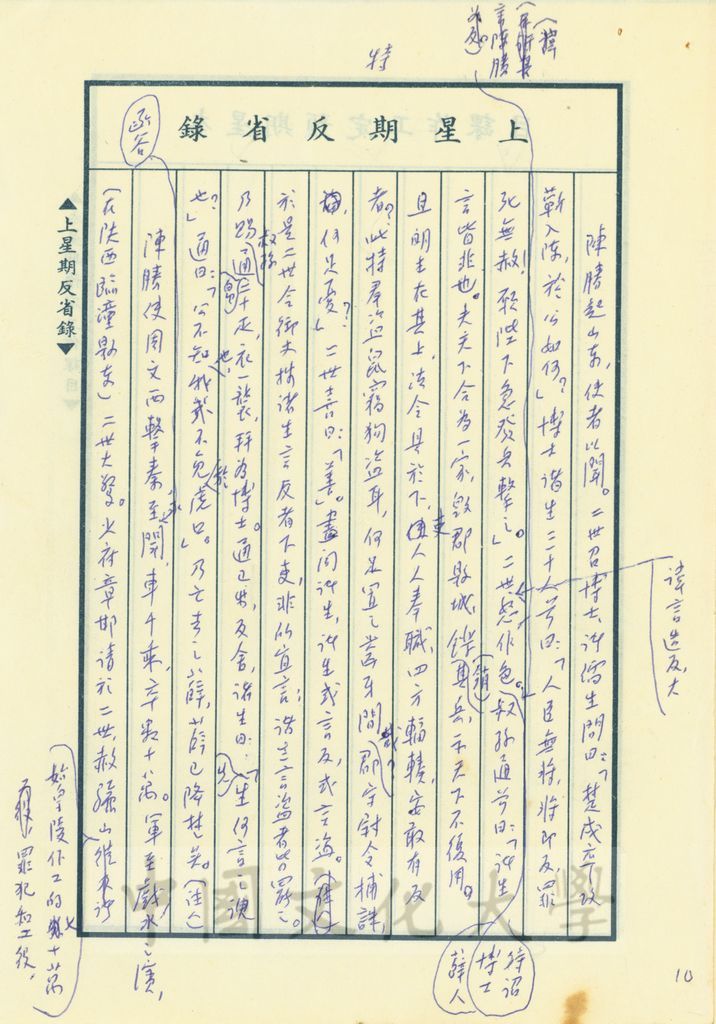 特
上星期反省錄
陳勝起山東,使者以聞。二世召博士諸儒生問曰:「楚戍卒攻
蘄入陳,於公如何?」博士諸生三十人前曰:「人臣無將,將即反,罪
死無赦!願陛下急發兵擊之。」二世怒,作色。叔孫通前曰:「諸生
言皆非也。夫天下合為一家,毀郡縣城,鑠其兵,示天下不復用。
且明主在其上,法令具於下,使人人奉職,四方輻輳,安敢有反
者?此特群盜鼠竊狗盜耳,何足置之齒牙間哉?郡守尉令捕誅,
何足憂?」二世喜曰:「善」。盡問諸生,諸生或言反,或言盜。
於是二世令御史按諸生言反者下吏,非所宜言;諸言盜者皆罷之。
乃賜叔孫通帛二十疋,衣一襲,拜為博士。通已出,反舍,諸生曰:「先生何言之諛
也?」通曰:「公不知也,我幾不免於虎口。」乃亡去之薛,薛已降楚矣。
陳勝使周文西擊秦,至函谷關,車千乘,卒數十萬。軍至戲水之濱,
(在陝西臨潼縣東)二世大驚。少府章邯請於二世,赦驪山
函谷
(諱
言陳勝
為反。)
諱言造反大
(銷)
待詔
博士
薛人
始皇陵作工的數十萬
罪犯和工役,
▲上星期反省錄▼
中國文化大學
10